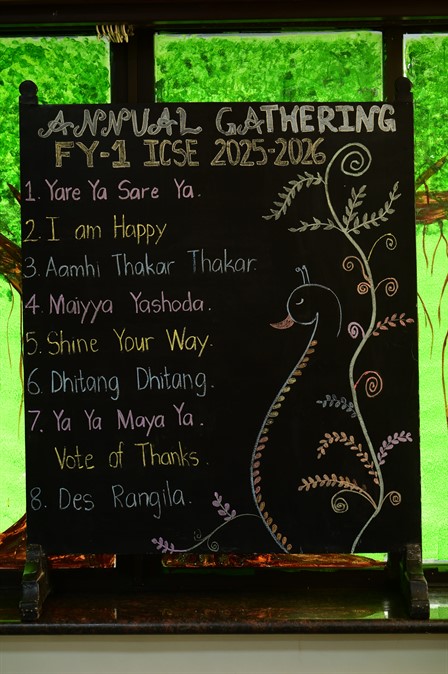 ANNUAL GATHERING
FY-1 ICSE 2025-2026
1. Yare Ya Sare Ya.
2. I am Happy
3. Aamhi Thakar Thakar.
4. Maiyya Yashoda.
5. Shine Your Way.
6. Dhitang Dhitang.
7. Ya Ya Maya Ya.
Vote of Thanks.
8. Des Rangila.